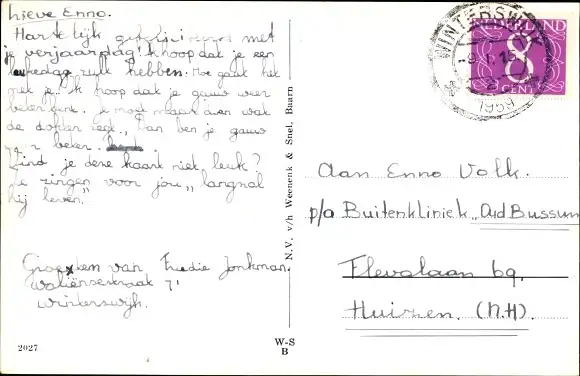 Lieve Enno.
Hartelijk gefeliciteerd met
je verjaardag! Ik hoop dat je een
leuke dag zult hebben. Hoe gaat het
met je? Ik hoop dat je gauw weer
beter bent. Je moet maar doen wat
de dokter zegt, dan ben je gauw
beter.
Vind je deze kaart niet leuk?
Ze zingen voor jou „langzal
hij leven."
Groeten van Fredie Jonkman.
71
Winterswijk.
2027
W-S
B
N.V. v/h Weenenk & Snel, Baarn
NEDERLAND
8
CENT
WINTERSWIJK
1959
Aan Enno Volk.
p/a Buitenkliniek „Oud Bussum
Flevolaan 69.
Huizen. (N.H).